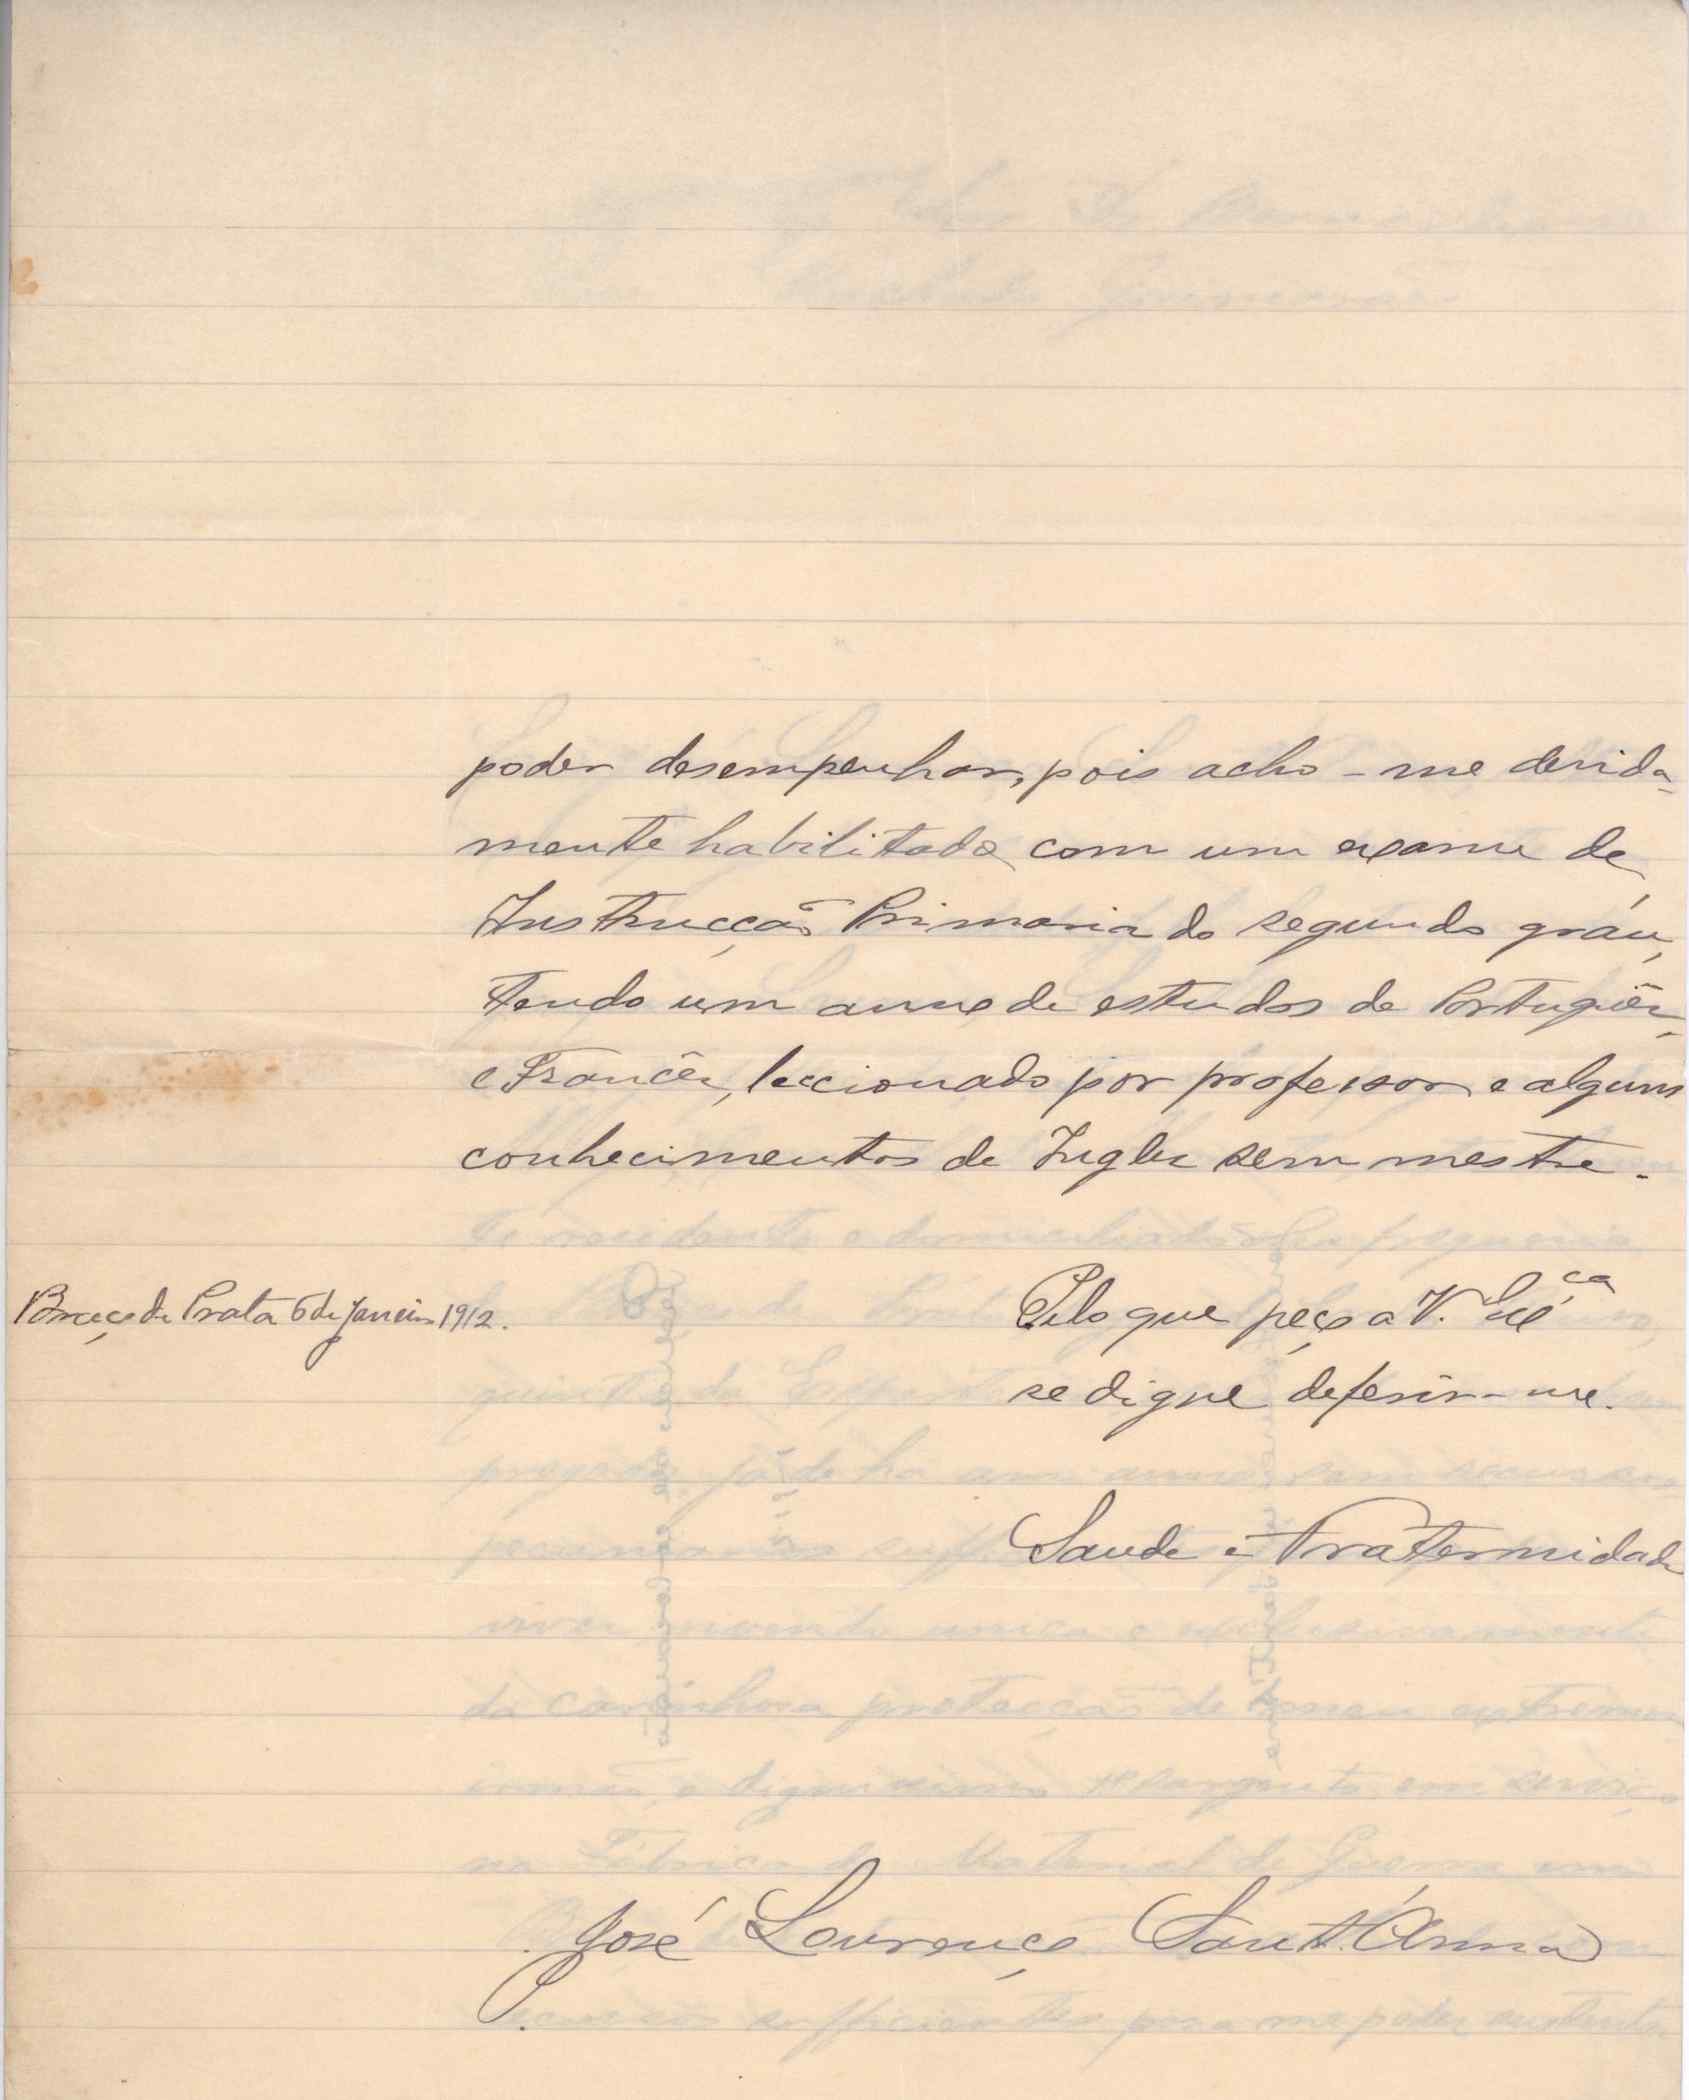 poder desempenhar, pois acho-me devida-
mente habilitado com um exame de
Instrucção Primaria do segundo gráu,
tendo um anno de estudos de Portuguêz
e Francêz, leccionado por professor e alguns
conhecimentos de Inglez sem mestre.
Braço de Prata 6 de Janeiro 1912.
Pelo que peço a V. Exª
se digne deferir-me.
Saude e Fraternidade
José Lourenço Sant'Anna